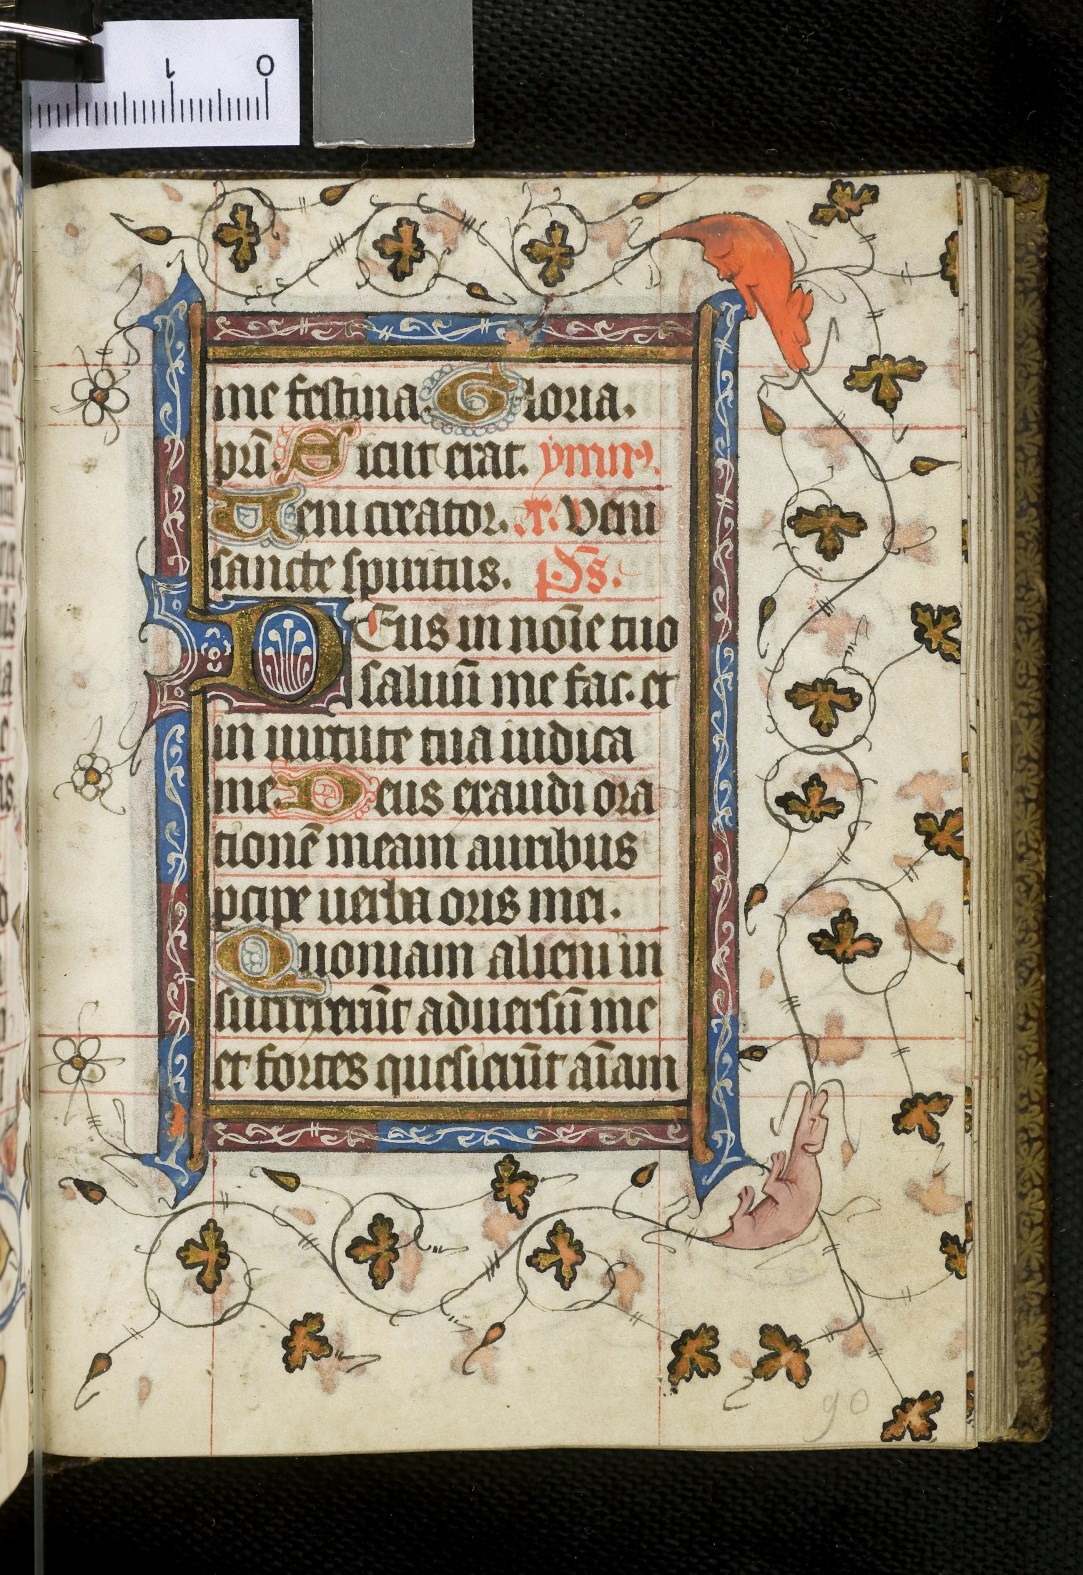 1 0
me festina. Gloria.
pr̄i. Sicut erat. ymnꝰ.
Ueni creator. r. Veni
sancte spiritus. Ps̄.
Deus in noīe tuo
saluū me fac. et
in uirtute tua iudica
me. Deus exaudi ora
tionē meam auribus
pcipe uerba oris mei.
Quoniam alieni in
surrexerūt aduersū me
et fortes quesierūt aīam
90